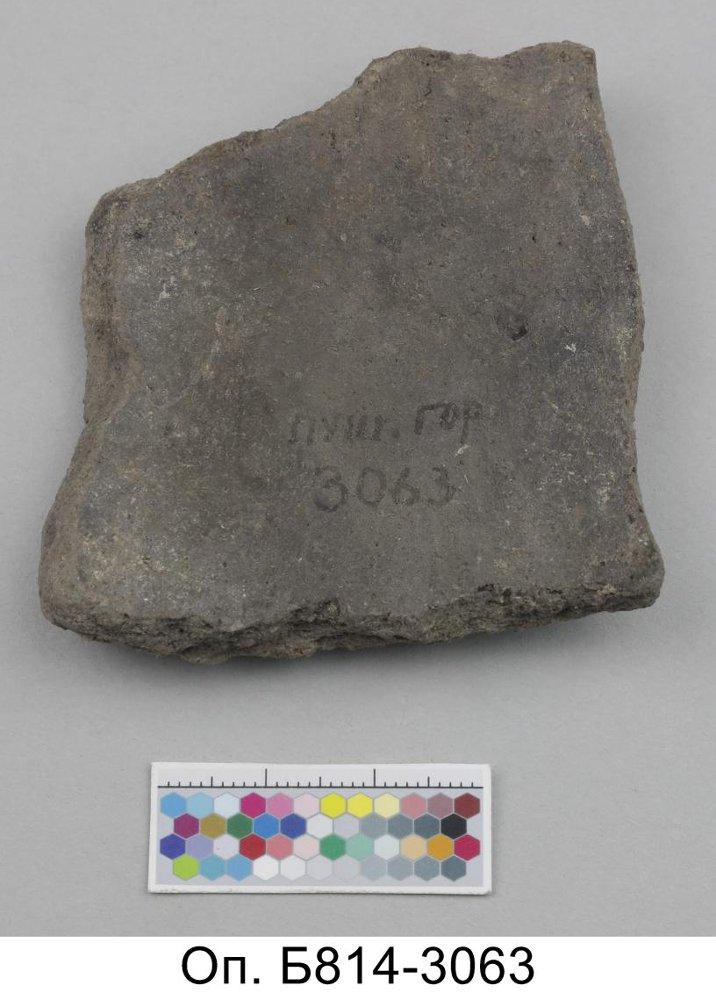 пушг. гор
3063
Оп. Б814-3063